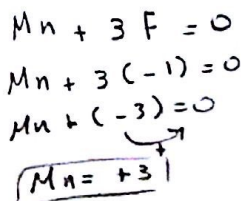 Mn + 3 F = 0
Mn + 3 (-1) = 0
Mn + (-3) = 0
+
Mn = +3